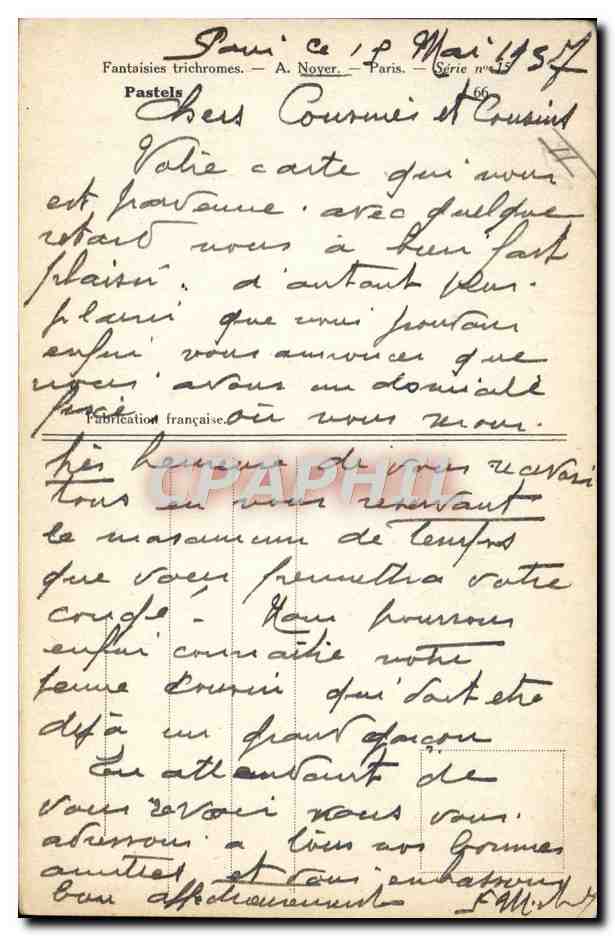 Paris ce 18 Mai 1937
Fantaisies trichromes. — A. Noyer. — Paris. — Série nº 15
Pastels 66
Chers Cousines et Cousins
II
Votre carte qui nous
est parvenue. avec quelque
retard nous à bien fait
plaisir. d'autant plus.
plaisir que nous pouvons
enfin vous annoncer que
nous avons un domicile
fixe où nous
Fabrication française.
très heureuse de vous recevoir
tous en vous reservant
le maximum de temps
que vous permettra votre
congé. Nous pourrons
enfin connaitre notre
jeune Cousin qui doit etre
déjà un grand garçon
En attendant de
vous revoir nous vous.
adressons a tous nos bonnes
amities et vous embrassons
bien affectueusement
CPAPHIL